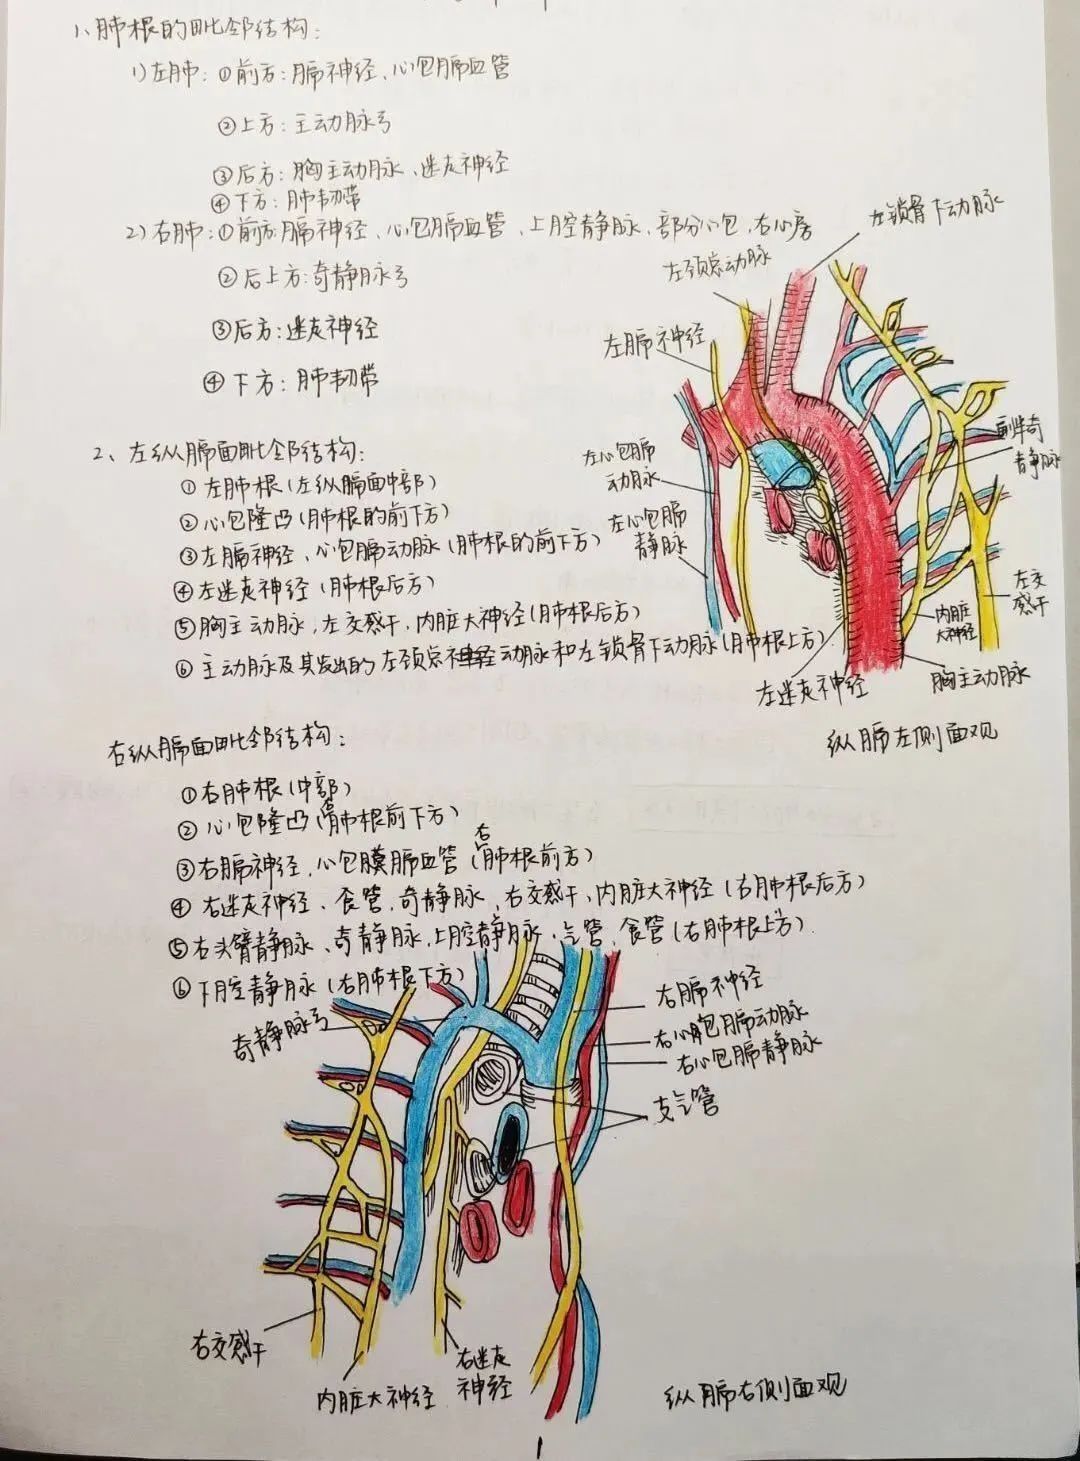 1、肺根的毗邻结构：
1)左肺：①前方：膈神经、心包膈血管
②上方：主动脉弓
③后方：胸主动脉、迷走神经
④下方：肺韧带
2)右肺：①前方:膈神经、心包膈血管、上腔静脉、部分心包、右心房
②后上方:奇静脉弓
③后方：迷走神经
④下方：肺韧带
左锁骨下动脉
左颈总动脉
左膈神经
左心包膈
动脉
左心包膈
静脉
副半奇
静脉
左交
感干
内脏
大神经
左迷走神经
胸主动脉
纵膈左侧面观
2、左纵膈面毗邻结构：
①左肺根(左纵膈面中部)
②心包隆凸(肺根的前下方)
③左膈神经、心包膈动脉(肺根的前下方)
④左迷走神经(肺根后方)
⑤胸主动脉,左交感干,内脏大神经(肺根后方)
⑥主动脉及其发出的左颈总动脉和左锁骨下动脉(肺根上方)
右纵膈面毗邻结构：
①右肺根(中部)
②心包隆凸(右肺根前下方)
③右膈神经,心包膜膈血管(右肺根前方)
④右迷走神经、食管,奇静脉,右交感干,内脏大神经(右肺根后方)
⑤右头臂静脉、奇静脉,上腔静脉、气管,食管(右肺根上方)
⑥下腔静脉(右肺根下方)
奇静脉弓
右膈神经
右心包膈动脉
右心包膈静脉
支气管
右交感干
内脏大神经
右迷走
神经
纵膈右侧面观
1